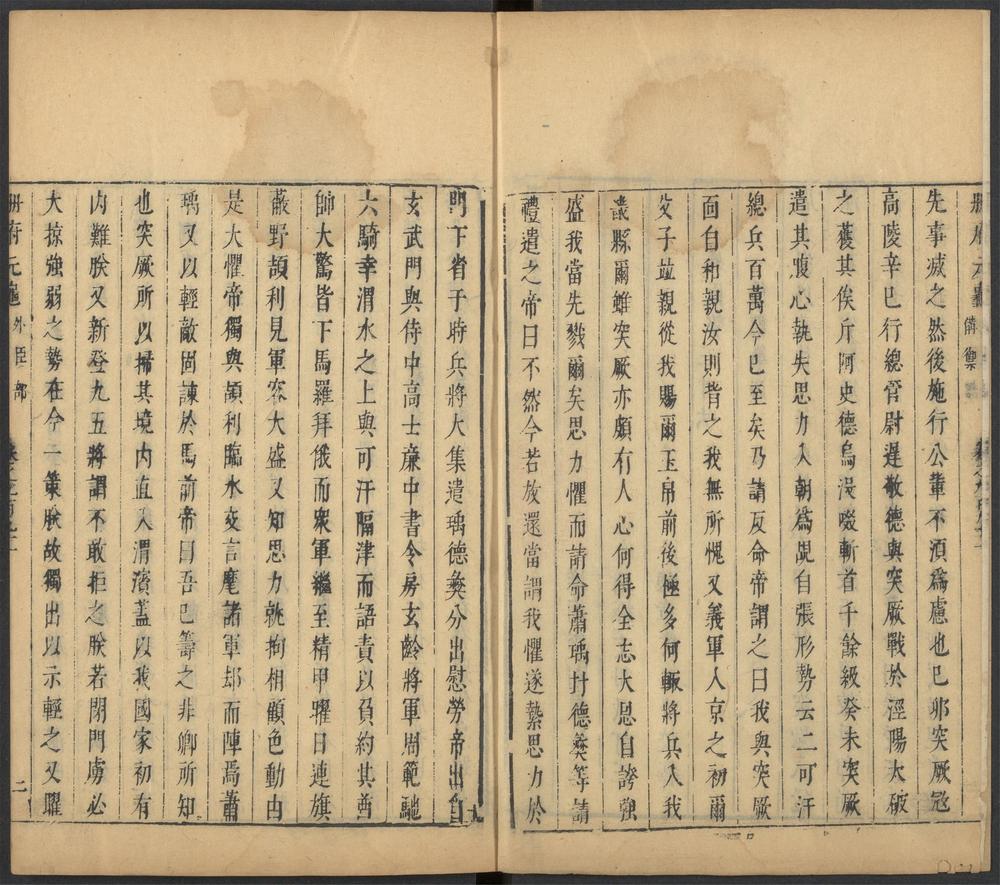 冊府元龜 備禦
先事滅之然後施行公輩不湏爲慮也己卯突厥宼
高陵辛巳行總管尉遲敬德與突厥戰於涇陽大破
之獲其俟斤阿史德烏沒啜斬首千餘級癸未突厥
遣其腹心執失思力入朝爲覘自張形勢云二可汗
總兵百萬今巳至矣乃請反命帝謂之曰我與突厥
面自和親汝則背之我無所愧又義軍入京之初爾
父子並親從我賜爾玉帛前後極多何輙將兵入我
畿縣爾雖突厥亦頗有人心何得全忘大恩自誇強
盛我當先戮爾矣思力懼而請命蕭瑀封德彜等請
禮遣之帝曰不然今若放還當謂我懼遂縶思力於
門下省于時兵將大集遣瑀德彜分出慰勞帝出自
玄武門與侍中高士廉中書令房玄齡將軍周範馳
六騎幸渭水之上與可汗隔津而語責以負約其酋
帥大驚皆下馬羅拜俄而衆軍繼至精甲曜日連旗
蔽野頡利見軍容大盛又知思力就拘相顧色動由
是大懼帝獨與頡利臨水交言麾諸軍却而陣焉蕭
瑀又以輕敵固諫於馬前帝曰吾已籌之非卿所知
也突厥所以掃其境內直入渭濱蓋以我國家初有
内難朕又新登九五將謂不敢拒之朕若閉門虜必
大掠強弱之勢在今一策朕故獨出以示輕之又曜
冊府元龜 外臣部 二